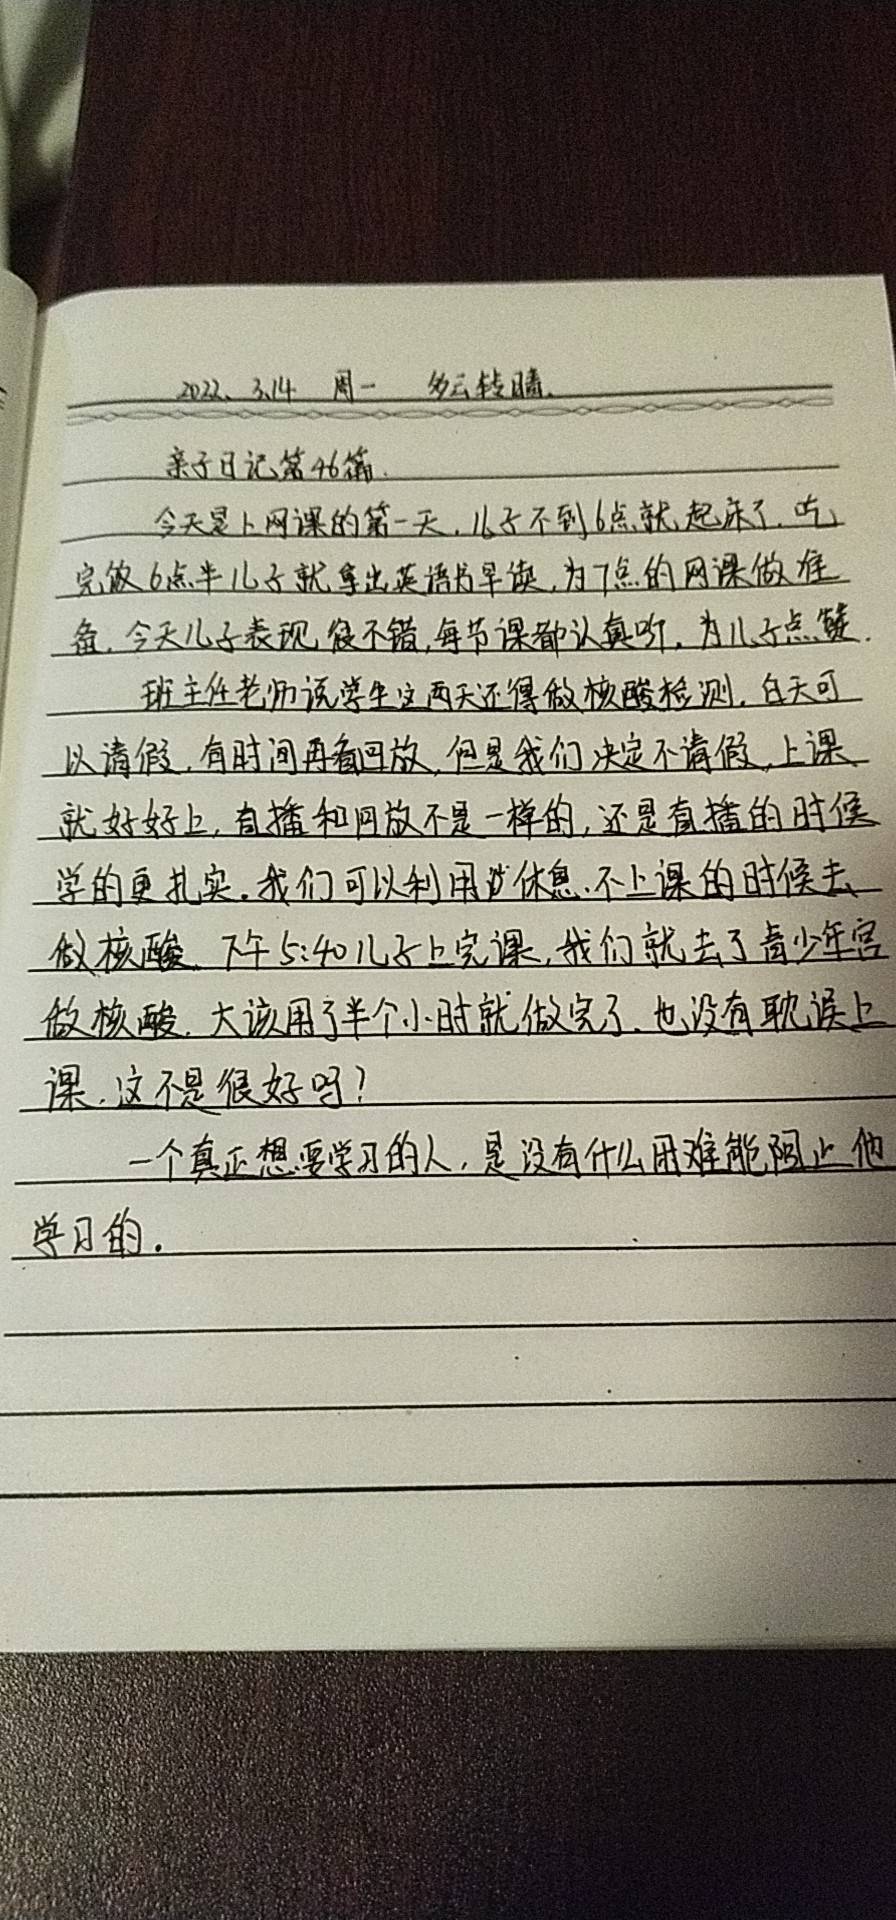 2022、3.14 周一 多云转晴.
亲子日记第46篇.
今天是上网课的第一天,儿子不到6点就起床了,吃
完饭6点半儿子就拿出英语书早读,为7点的网课做准
备,今天儿子表现很不错,每节课都认真听,为儿子点赞.
班主任老师说学生这两天还得做核酸检测,白天可
以请假,有时间再看回放,但是我们决定不请假,上课
就好好上,直播和回放不是一样的,还是直播的时候
学的更扎实。我们可以利用休息、不上课的时候去
做核酸、下午5:40儿子上完课,我们就去了青少年宫
做核酸,大该用了半个小时就做完了,也没有耽误上
课,这不是很好吗?
一个真正想要学习的人,是没有什么困难能阻止他
学习的。